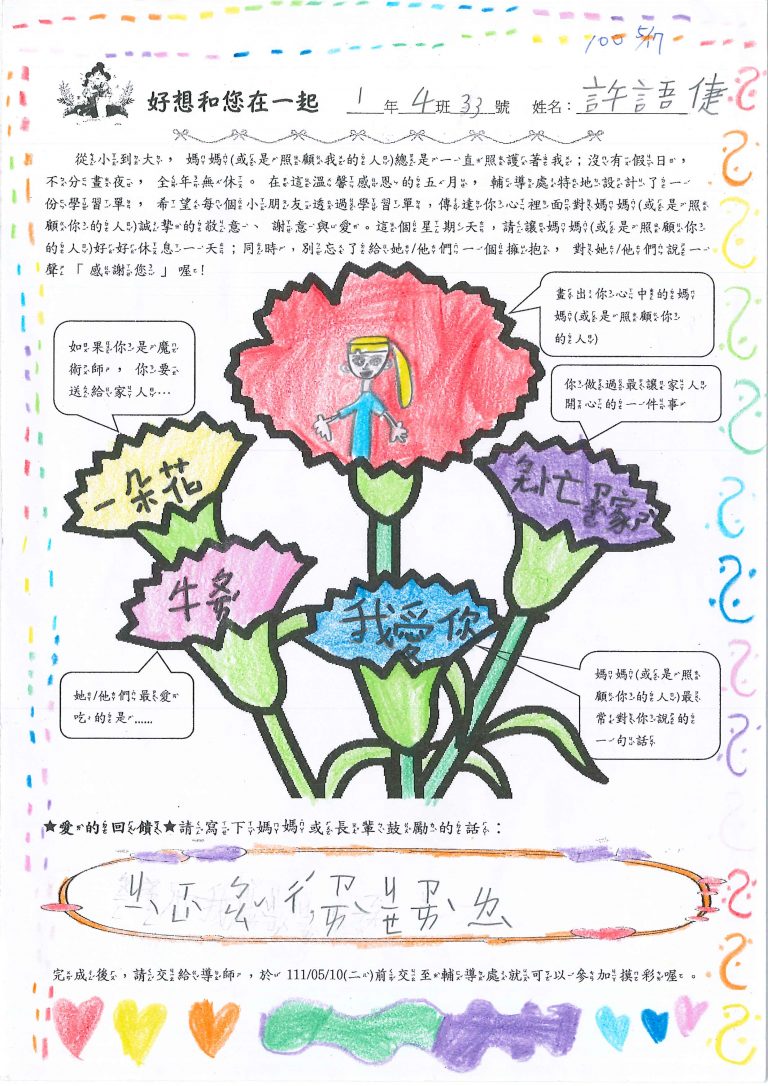 100 5/17
好想和您在一起 1年4班33號 姓名:許語倢
從小到大，媽媽(或是照顧我的人)總是一直照護著我；沒有假日，
不分晝夜，全年無休。在這溫馨感恩的五月，輔導處特地設計了一
份學習單，希望每個小朋友透過學習單，傳達你心裡面對媽媽(或是照
顧你的人)誠摯的敬意、謝意與愛。這個星期天，請讓媽媽(或是照顧你
的人)好好休息一天；同時，別忘了給她/他們一個擁抱，對她/他們說一
聲「感謝您」喔！
畫出你心中的媽
媽(或是照顧你
的人)
如果你是魔
術師，你要
送給家人…
你做過最讓家人
開心的一件事
一朵花
忙
家
牛
我愛你
她/他們最愛
吃的是……
媽媽(或是照
顧你的人)最
常對你說的
一句話
★愛的回饋★請寫下媽媽或長輩鼓勵的話：
完成後，請交給導師，於 111/05/10(二)前交至輔導處就可以參加摸彩喔。